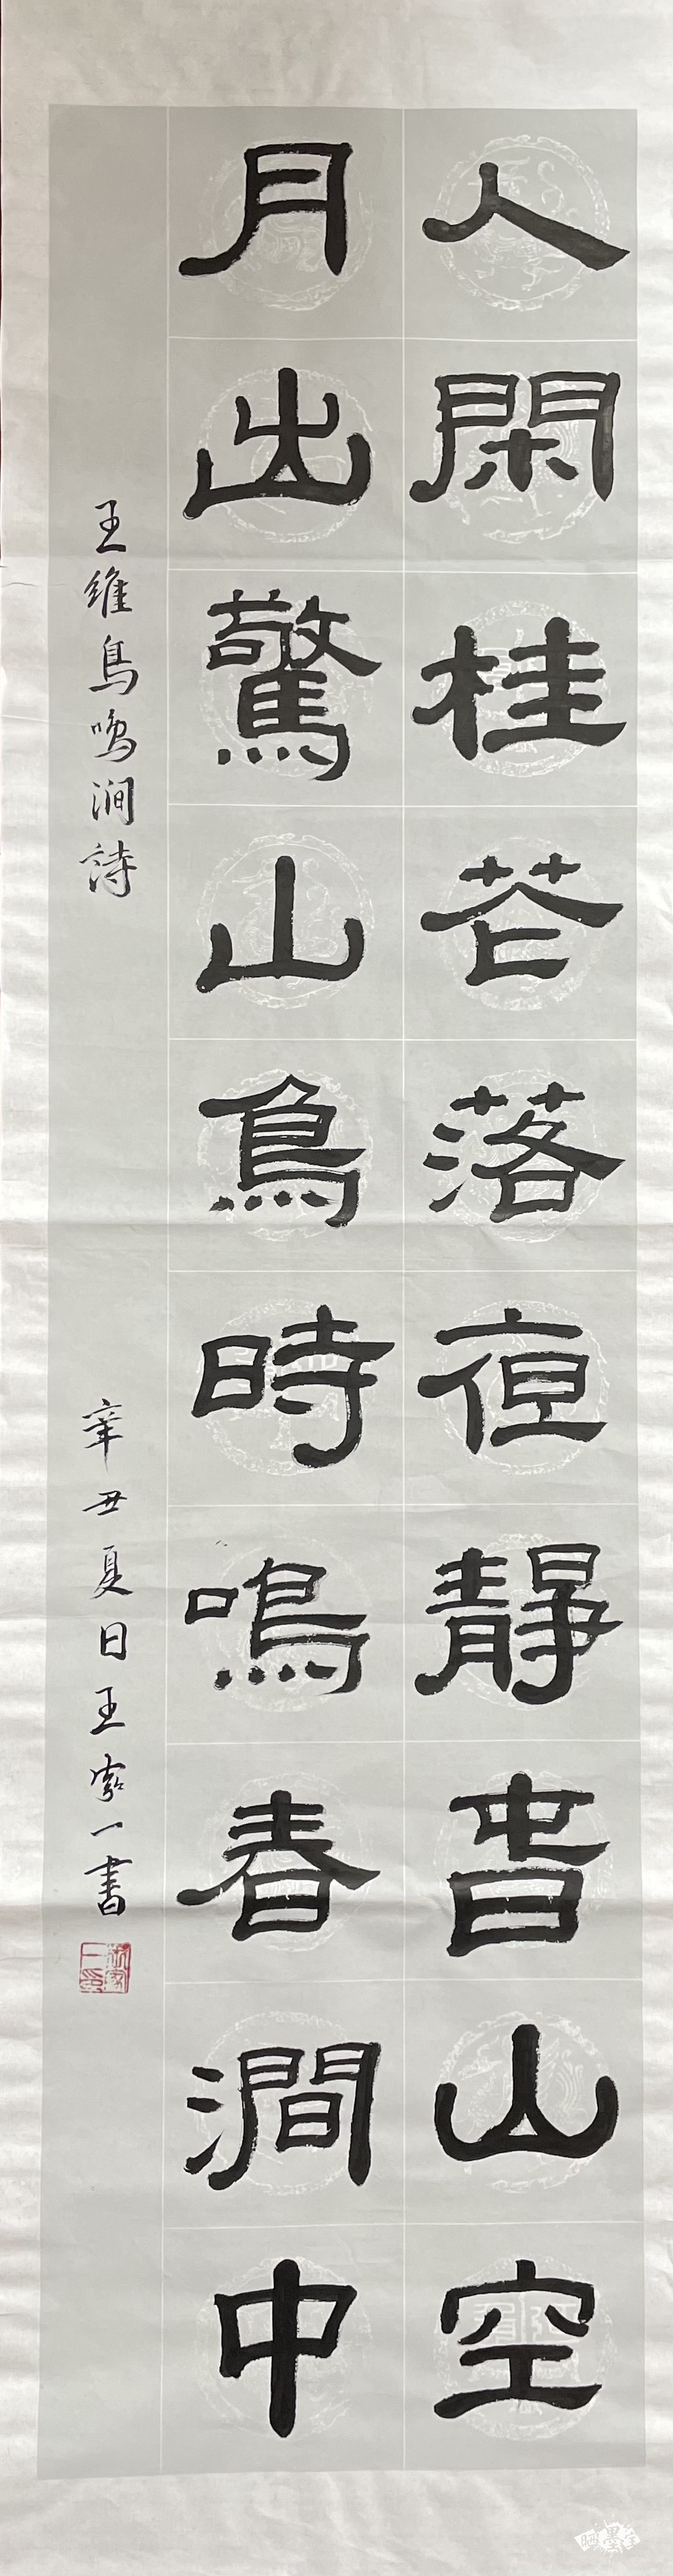 人閑桂花落夜靜旾山空
月出驚山鳥時鳴春澗中
王維鳥鳴澗詩
辛丑夏日王一書
晒墨宝